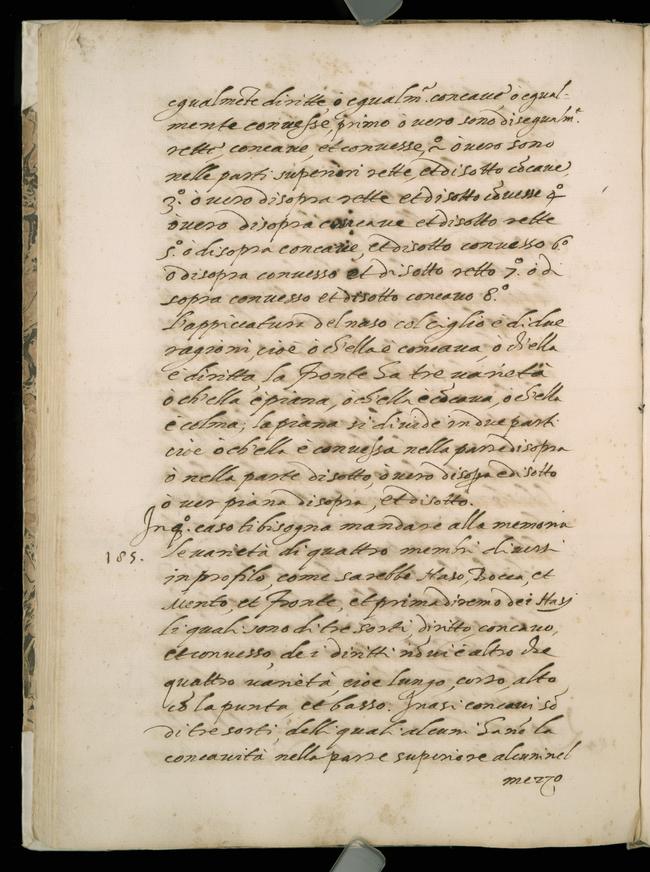 egualmẽte diritte ò egualm.ᵉ concaue ò egual-
mente conuesse, primo ò uero sono disegualm.ᵉ
rette concaue, et conuesse, 2. ò uero sono
nelle parti superiori rette, et disotto cõcaue,
3.º ò uero disopra rette et disotto cõuesse 4.º
ò uero disopra concaue et disotto rette
5.º ò disopra concaue, et disotto conuesso 6.º
ò disopra conuesso et disotto retto 7.º ò di
sopra conuesso et disotto concauo 8.º
L'appiccatura del naso col ciglio è di due
ragioni, cioè ò ch'ella è concaua, ò ch'ella
è diritta, la fronte ha tre uarietà
ò ch'ella è piana, ò ch'ella è cõcaua, ò ch'ella
è colma; la piana si diuide in due parti
cioè ò ch'ella è conuessa nella parte disopra
ò nella parte disotto, ò uero disopra e disotto
ò uer piana disopra, et disotto.
In q.º caso ti bisogna mandare alla memoria
185.
le uarietà di quattro membri diuersi
in profilo, come sarebbe Naso, Bocca, et
Mento, et Fronte, et prima diremo dei Nasi
li quali sono di tre sorti, diritto concauo,
et conuesso, de i diritti nõ ui è altro che
quattro uarietà, cioè lungo, corto, alto
cõ la punta et basso. I nasi concaui sõ
di tre sorti, delli quali alcuni hanno la
concauità nella parte superiore alcuni nel
mezzo